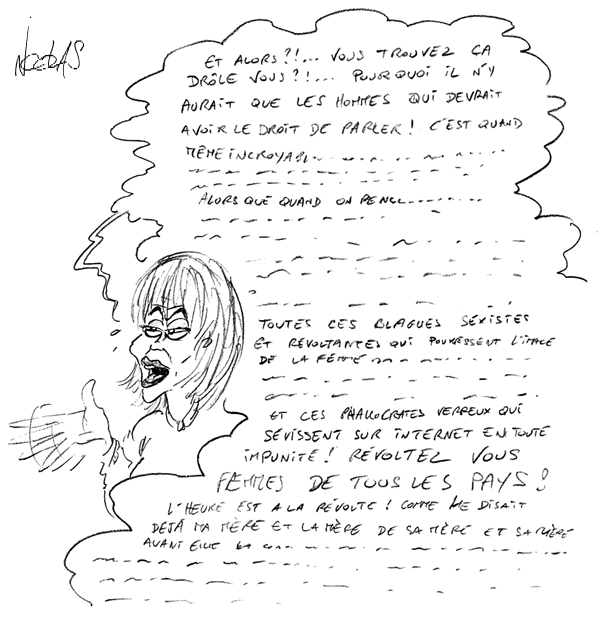 Nicolas
ET ALORS?!... VOUS TROUVEZ CA
DRÔLE VOUS?!... POURQUOI IL N'Y
AURAIT QUE LES HOMMES QUI DEVRAIT
AVOIR LE DROIT DE PARLER! C'EST QUAND
MÊME INCROYAB
ALORS QUE QUAND ON PENC........
TOUTES CES BLAGUES SÉXISTES
ET RÉVOLTANTES QUI POURRISSENT L'IMAGE
DE LA FEMME
ET CES PHALLOCRATES VERREUX QUI
SÉVISSENT SUR INTERNET EN TOUTE
IMPUNITÉ! RÉVOLTEZ VOUS
FEMMES DE TOUS LES PAYS!
L'HEURE EST A LA RÉVOLTE! COMME ME DISAIT
DÉJÀ MA MÈRE ET LA MÈRE DE SA MÈRE ET SA MÈRE
AVANT ELLE